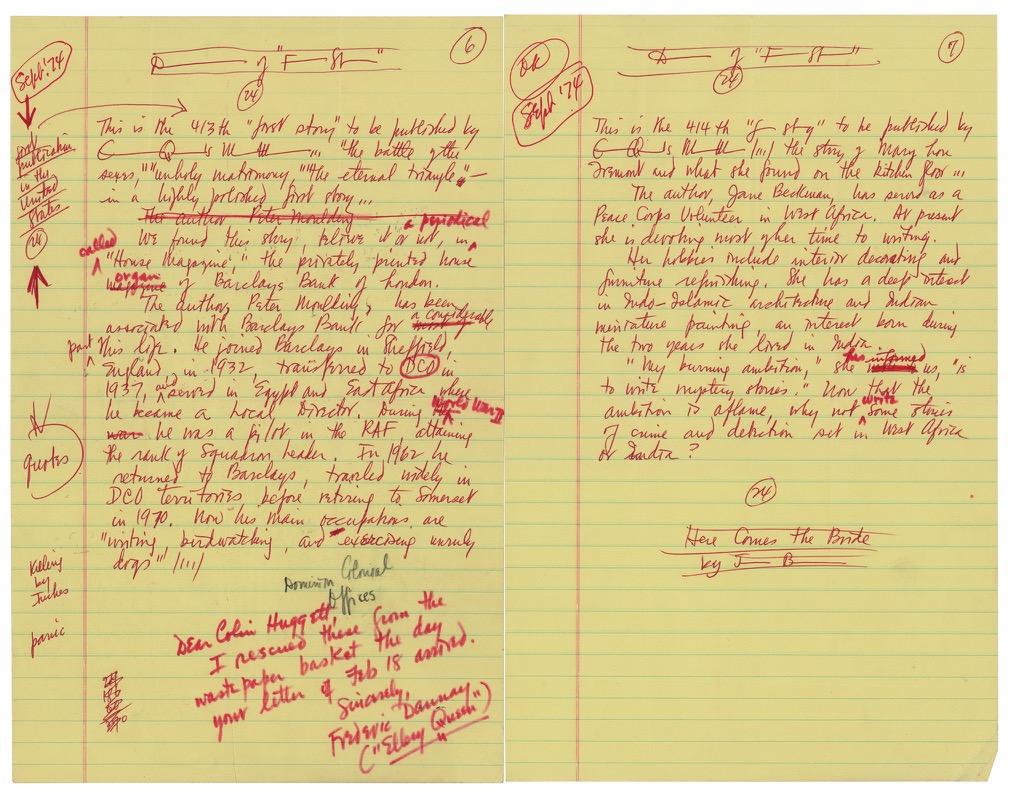 6
D—— of "F—— St——"
24
Sept '74
first
publication
in the
United
States
24
This is the 413th "first story" to be published by
E—— Q—— 's M—— M—— ... "the battle of the
sexes," "unholy matrimony," "the eternal triangle" —
in a highly polished first story ...
The author Peter Moulding
We found this story, believe it or not, in a periodical
called "House Magazine," the privately printed house
magazine organ of Barclays Bank of London.
The author, Peter Moulding, has been
associated with Barclays Bank for most a considerable
part his life. He joined Barclays in Sheffield,
England, in 1932, transferred to DCO in
1937, and served in Egypt and East Africa where
he became a Local Director. During World War II
war he was a pilot in the RAF attaining
the rank of Squadron Leader. In 1962 he
returned to Barclays, traveled widely in
DCO territories before retiring to Somerset
in 1970. Now his main occupations are
"writing, birdwatching, and exercising unruly
dogs" /////
quotes
Killing
by
Inches
panic
Dominion Colonial
Offices
Dear Colin Huggett,
I rescued these from the
wastepaper basket the day
your letter of Feb 18 arrived.
Sincerely,
Frederic Dannay
("Ellery Queen")
7
OK
Sept '74
D—— of "F—— St——"
24
This is the 414th "f—— st—y" to be published by
E—— Q—— 's M—— M—— ///// the story of Mary Lou
Tremont and what she found on the kitchen floor ...
The author, Jane Beckman, has served as a
Peace Corps Volunteer in West Africa. At present
she is devoting most of her time to writing.
Her hobbies include interior decorating and
furniture refinishing. She has a deep interest
in Indo-Islamic architecture and Indian
miniature painting, an interest born during
the two years she lived in India.
"My burning ambition," she has informed us, "is
to write mystery stories." Now that the
ambition is aflame, why not write some stories
of crime and detection set in West Africa
or India?
24
Here Comes the Bride
by J—— B——